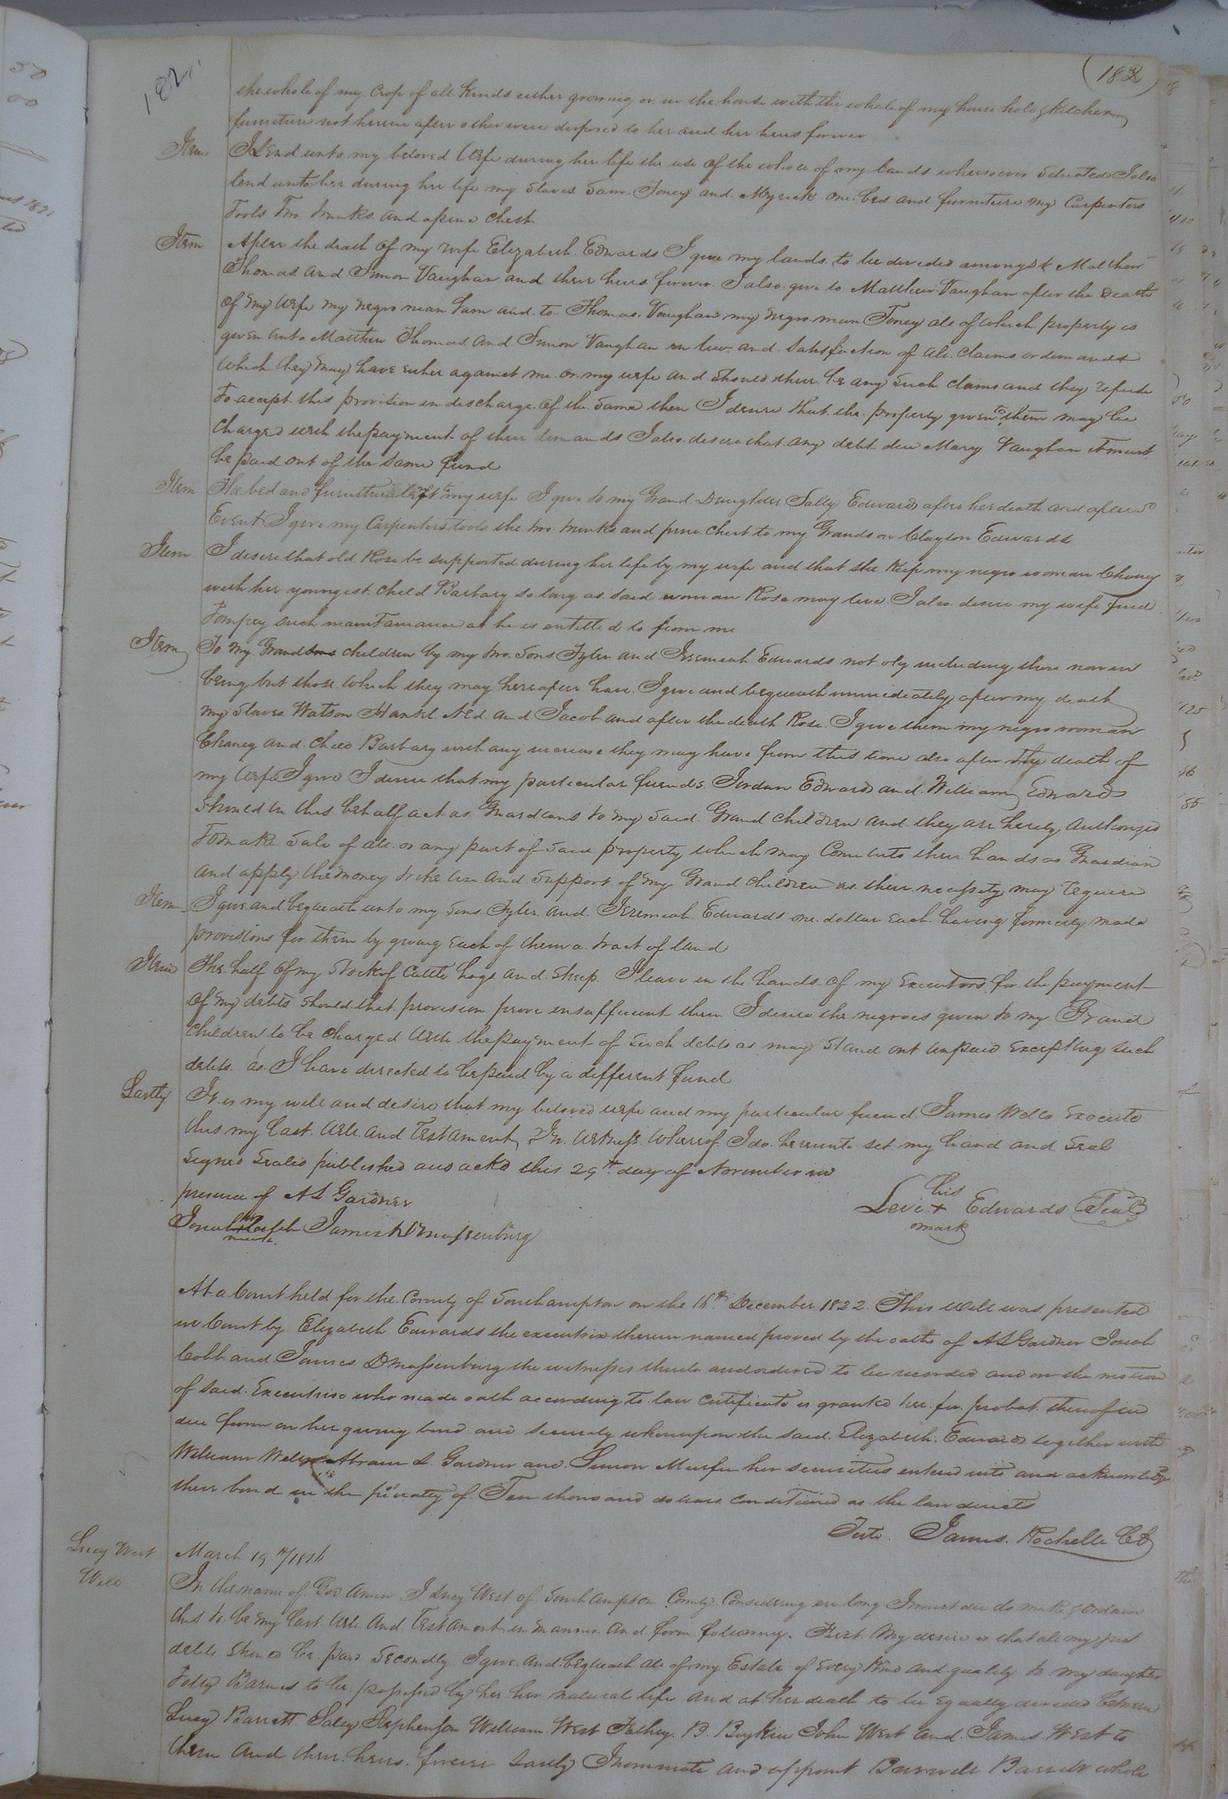 182
the whole of my Crop of all kinds either growing or in the house with the whole of my house hold & kitchen
furniture not herein after other wise disposed to her and her heirs forever
Item I Lend unto my beloved Wife during her life the use of the whole of my Lands wheresoever Situated I also
lend unto her during her life my Slaves Sam Toney and Myrick one bed and furniture my Carpenters
Tools Two trunks and a pine Chest
Item After the death of my wife Elizabeth Edwards I give my lands to be devided amongst Matthew
Thomas and Simon Vaughan and their heirs forever I also give to Matthew Vaughan after the Death
of my Wife my negro man Sam and to Thomas Vaughan my negro man Toney all of which property is
given unto Matthew Thomas and Simon Vaughan in lieu and Satisfaction of all Claims or demands
which they may have either against me or my wife and should there be any Such Claims and they refuse
to accept this provision in discharge of the Same then I desire that the property given to them may be
Charged with the payment of their demands I also desire that any debt due Mary Vaughan
be paid out of the same fund
Item The bed and furniture left to my wife I give to my Grand Daughter Sally Edwards after her death and after
Event I give my Carpenters tools the two trunks and pine Chest to my Grandson Clayton Edwards
Item I desire that old Rose be supported during her life by my wife and that she keep my negro woman Chaney
with her youngest Child Barbary so long as said woman Rose may live I also desire my wife find
Pompey such maintainance as he is entitled to from me
Item To my Grand sons children by my two Sons Tyler and Jeremiah Edwards not oly including those now in
being but those which they may hereafter have I give and bequeath immediately after my death
my Slaves Watson Ned and Jacob and after the death Rose I give them my negro woman
Chaney and Child Barbary with any increase they may have from this time also after the death of
my wife I give I desire that my particular friends Jordan Edwards and William Edwards
Should in this behalf act as Guardians to my Said Grand Children and they are hereby Authorized
To make Sale of all or any part of Said property which may Come into their hands as Guardian
and apply the money to the use and Support of my Grand children as their necessity may require
Item I give and bequeath unto my Sons Tyler and Jeremiah Edwards one dollar each having formerly made
provisions for them by giving Each of them a tract of land
Item The half of my Stock of Cattle hogs and Sheep I leave in the hands of my Executors for the payment
of my debts Should that provision prove insufficient then I desire the negroes given to my Grand
Children to be Charged with the payment of such debts as may Stand out unpaid excepting such
debts as I have directed to be paid by a different fund
Lastly It is my will and desire that my beloved wife and my particular friend James Wells Execute
this my Last Will and Testament In Witness Whereof I do hereunto set my hand and Seal
Signed Sealed published and ackd this 29th day of November in
presence of A L Gardner
his
Levi + Edwards Seal
mark
Josiah Cobb James D Massenburg
At a Court held for the County of Southampton on the 16th December 1822 This Will was presented
in Court by Elizabeth Edwards the executrix therein named proved by the oaths of A L Gardner Josiah
Cobb and James D Massenburg the witnesses thereto and ordered to be recorded and on the motion
of said Executrix who made oath according to law Certificate is granted her for probat thereof in
due form on her giving bond and Security whereupon the said Elizabeth Edwards together with
William Wells Abram L Gardner and Simon Murfee her securities entered into and acknowledge
their bond in the penalty of Ten thousand dollars conditioned as the law directs
Teste James Rochelle CC
Lucy West
Will
March 19th 1816
In the name of God Amen I Lucy West of Southampton County Considering ere long I must die do make & ordain
this to be my last Will And Testament in manner And form following. First My desire is that all my just
debts should be paid Secondly I give And bequeath all of my Estate of every kind and quality to my daughter
Barnes to be possessed by her her natural life and at her death to be Equally devided between
Lucy Barrett Saley Stephenson William West B. Boykin John West and James West to
them and their heirs forever Lastly I nominate and appoint Barrett whole